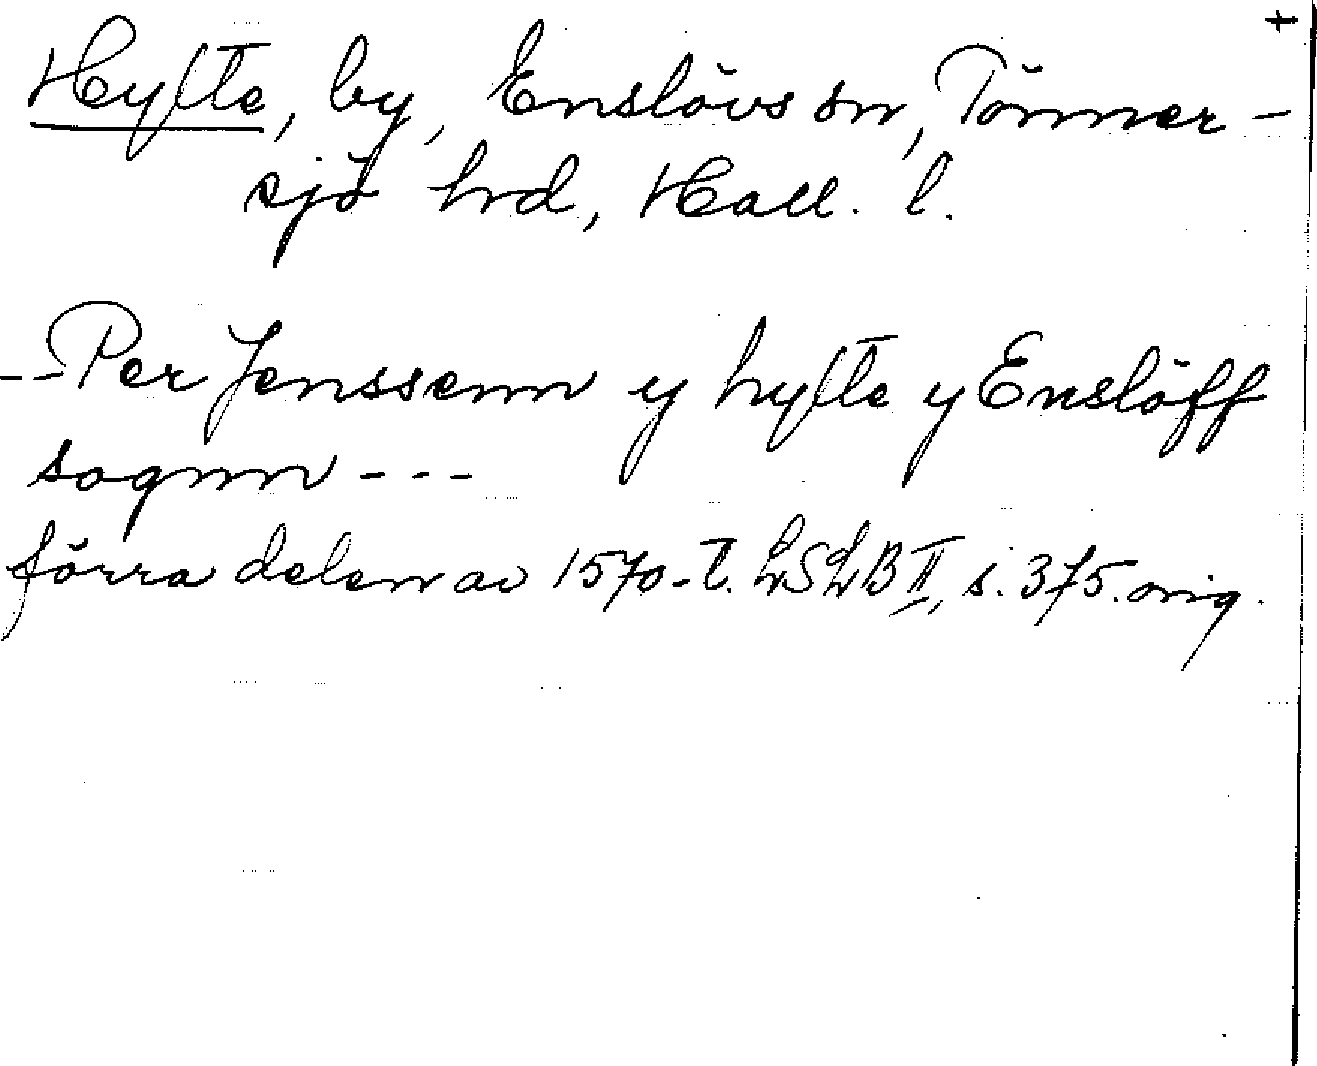 Hyfte, by, Enslövs sn, Tönner-
sjö hrd, Hall. l.
--Per Jenssenn y hyfte y Enslöff
sognn---
förra delen av 1570-t. LSLB II, s. 375. orig.